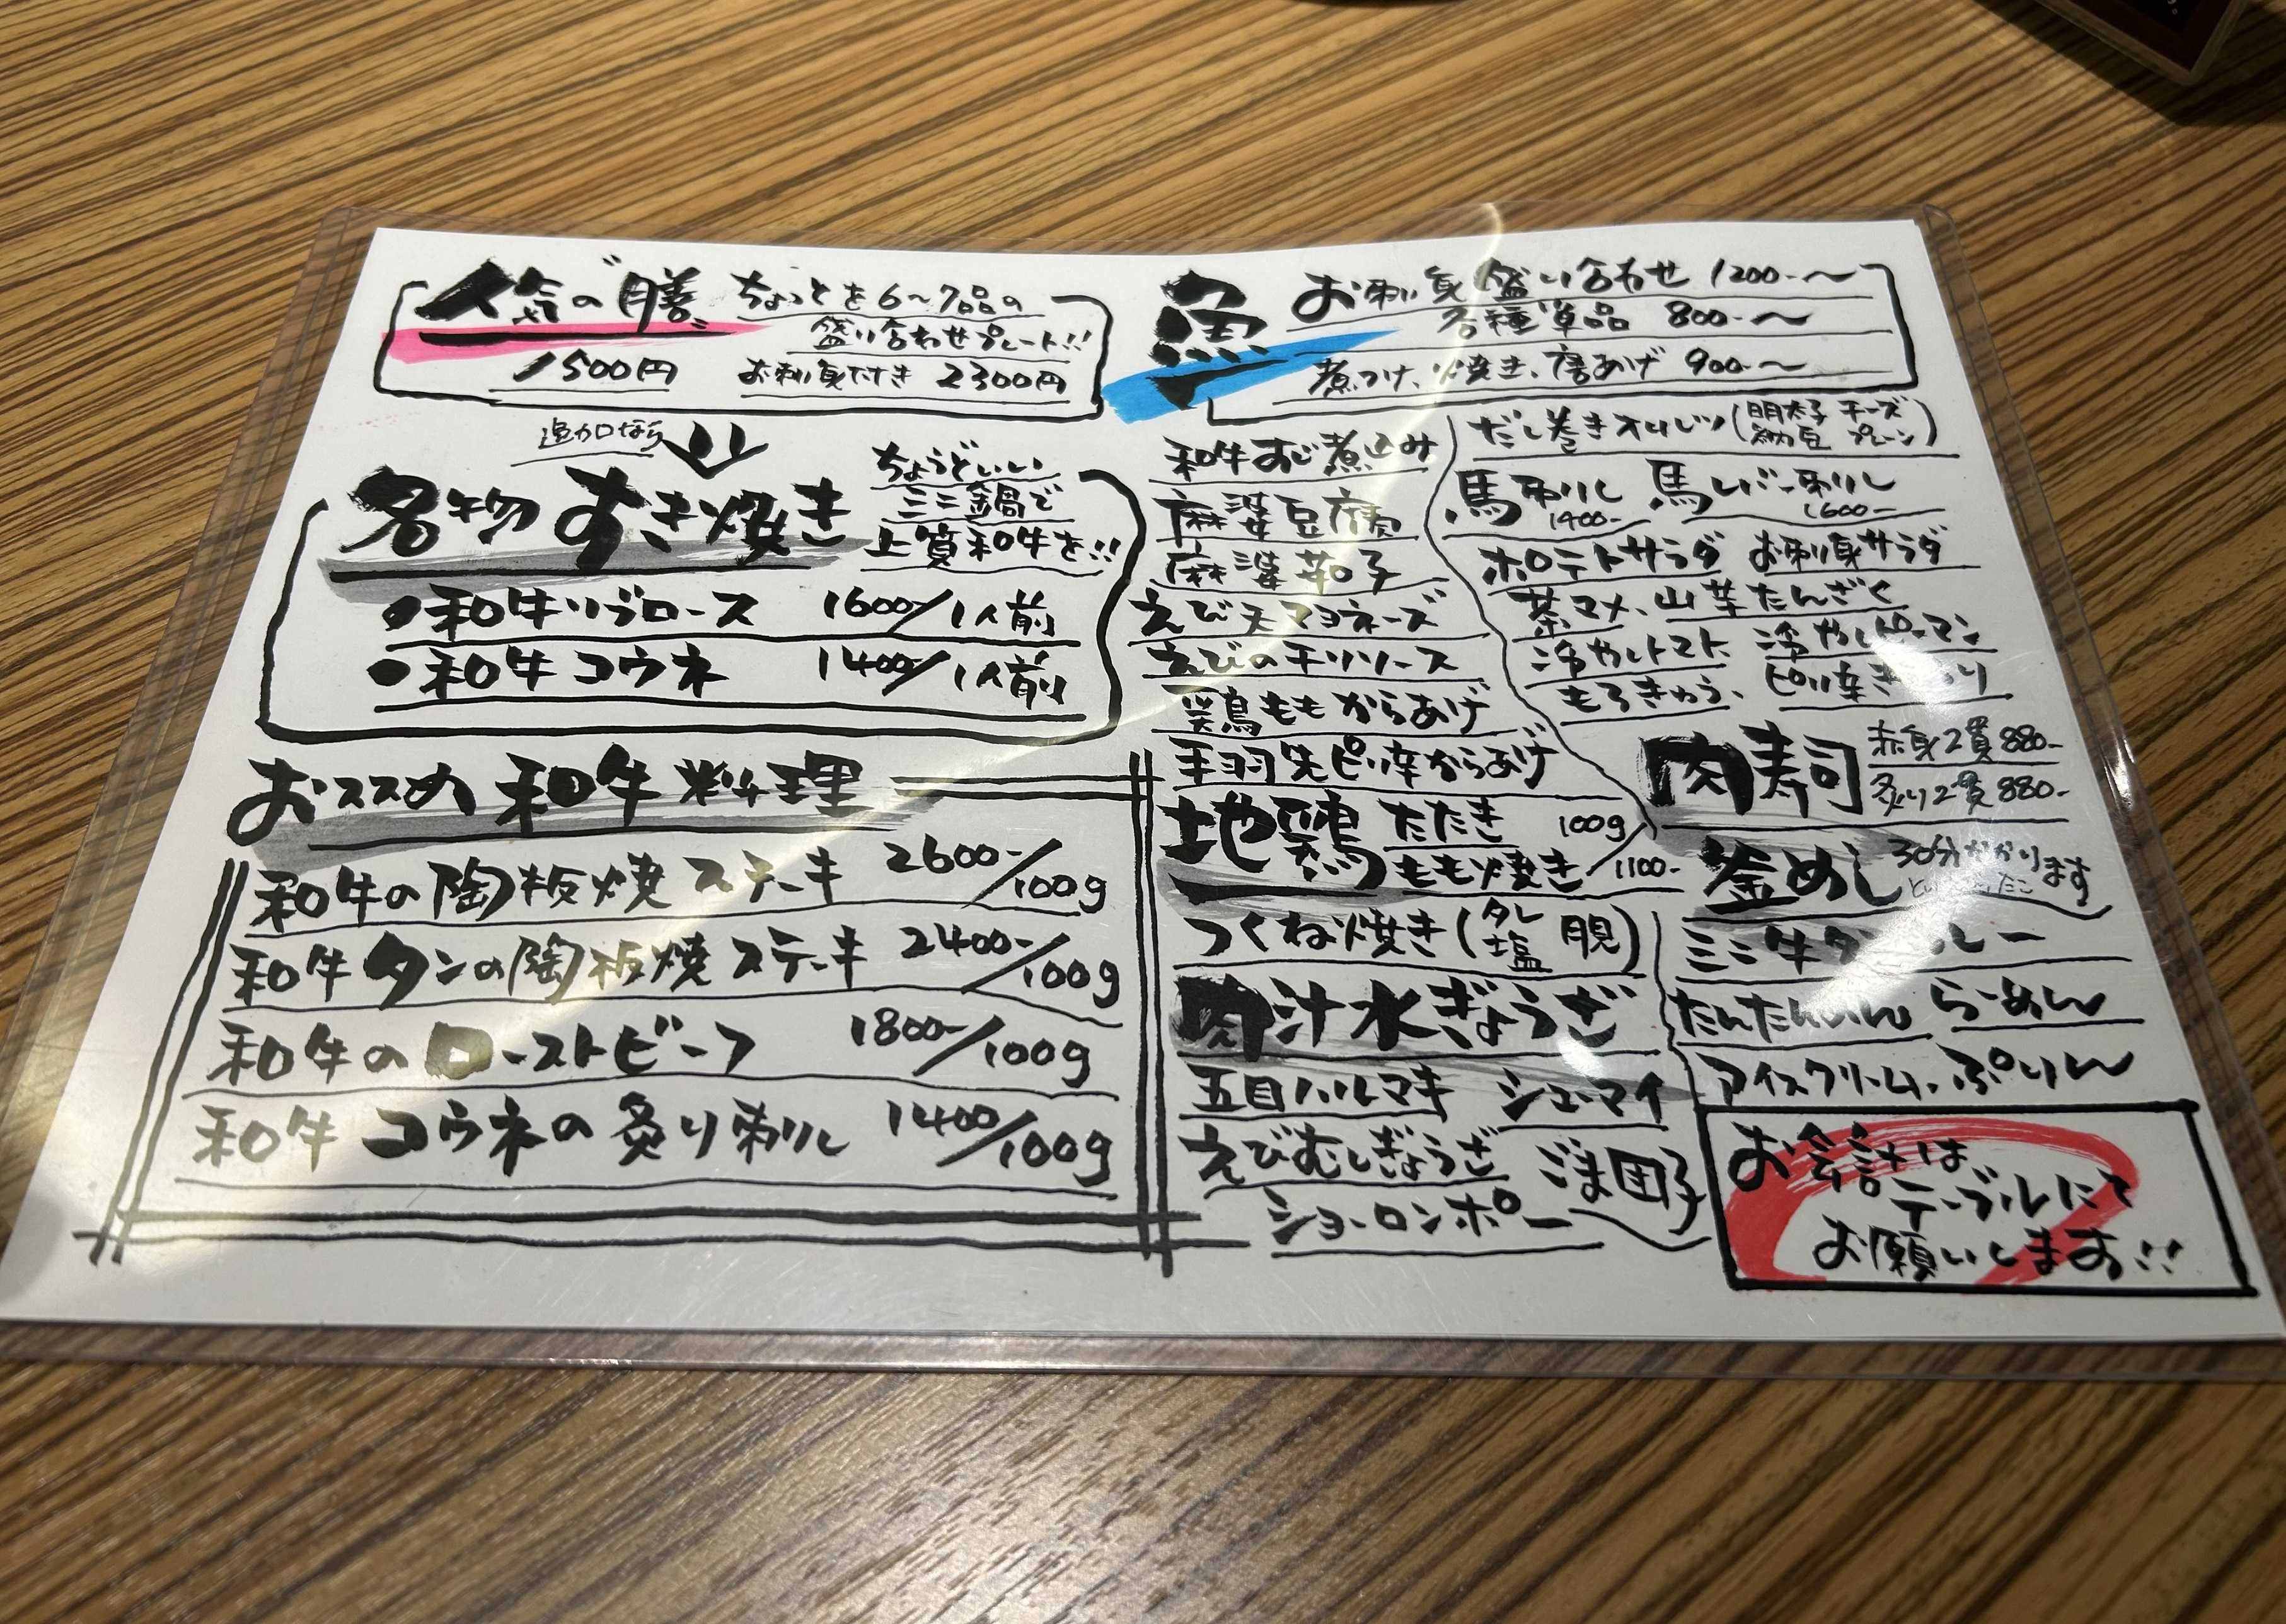 人気の膳 ちょっとを6〜7品の
盛り合わせプレート!!
1500円 お刺身付き 2300円
追加なら
名物 すき焼き
ちょうどいい
ミニ鍋で
上質和牛を!!
●和牛リブロース 1600-/1人前
●和牛コウネ 1400-/1人前
おススめ 和牛料理
和牛の陶板焼ステーキ 2600-/100g
和牛タンの陶板焼ステーキ 2400-/100g
和牛のローストビーフ 1800-/100g
和牛コウネの炙り刺し 1400-/100g
魚 お刺し身盛り合わせ 1200-〜
各種単品 800-〜
煮つけ、焼き、唐あげ 900-〜
和牛すじ煮込み
麻婆豆腐
麻婆茄子
えび天マヨネーズ
えびのチリソース
鶏ももからあげ
手羽先ピリ辛からあげ
地鶏 たたき 100g
もも焼き 1100-
つくね焼き(タレ 塩
肉汁水ぎょうざ
五目ハルマキ シューマイ
えびむしぎょうざ ごま団子
ショーロンポー
だし巻きオムレツ(明太子 チーズ
納豆 プレーン)
馬刺し 馬レバー刺し
1400- 1600-
ポテトサラダ お刺身サラダ
茶マメ、山芋たんざく
冷やしトマト 冷やしピーマン
もろきゅう、 ピリ辛き
肉寿司 赤身2貫 880-
炙り2貫 880-
釜めし 30分かかります
ミニ牛タ
たんたんめん らーめん
アイスクリーム、ぷりん
お会計は
テーブルにて
お願いします!!